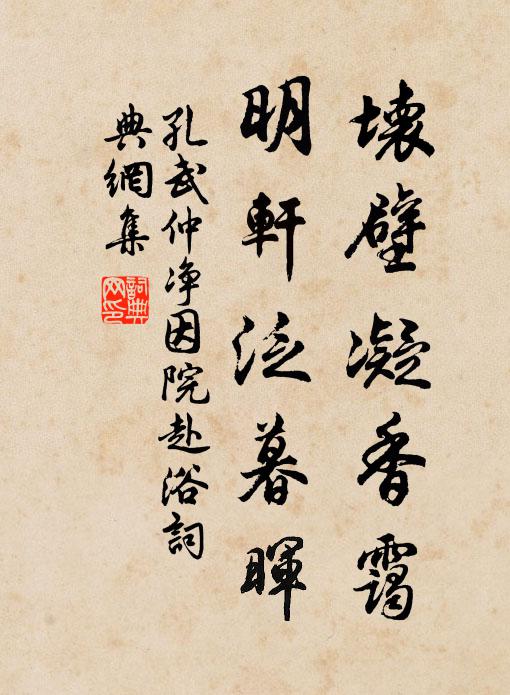 壞壁凝香靄
明軒泛暮暉
孔武仲净因院赴浴詞
典網集
詞典网印